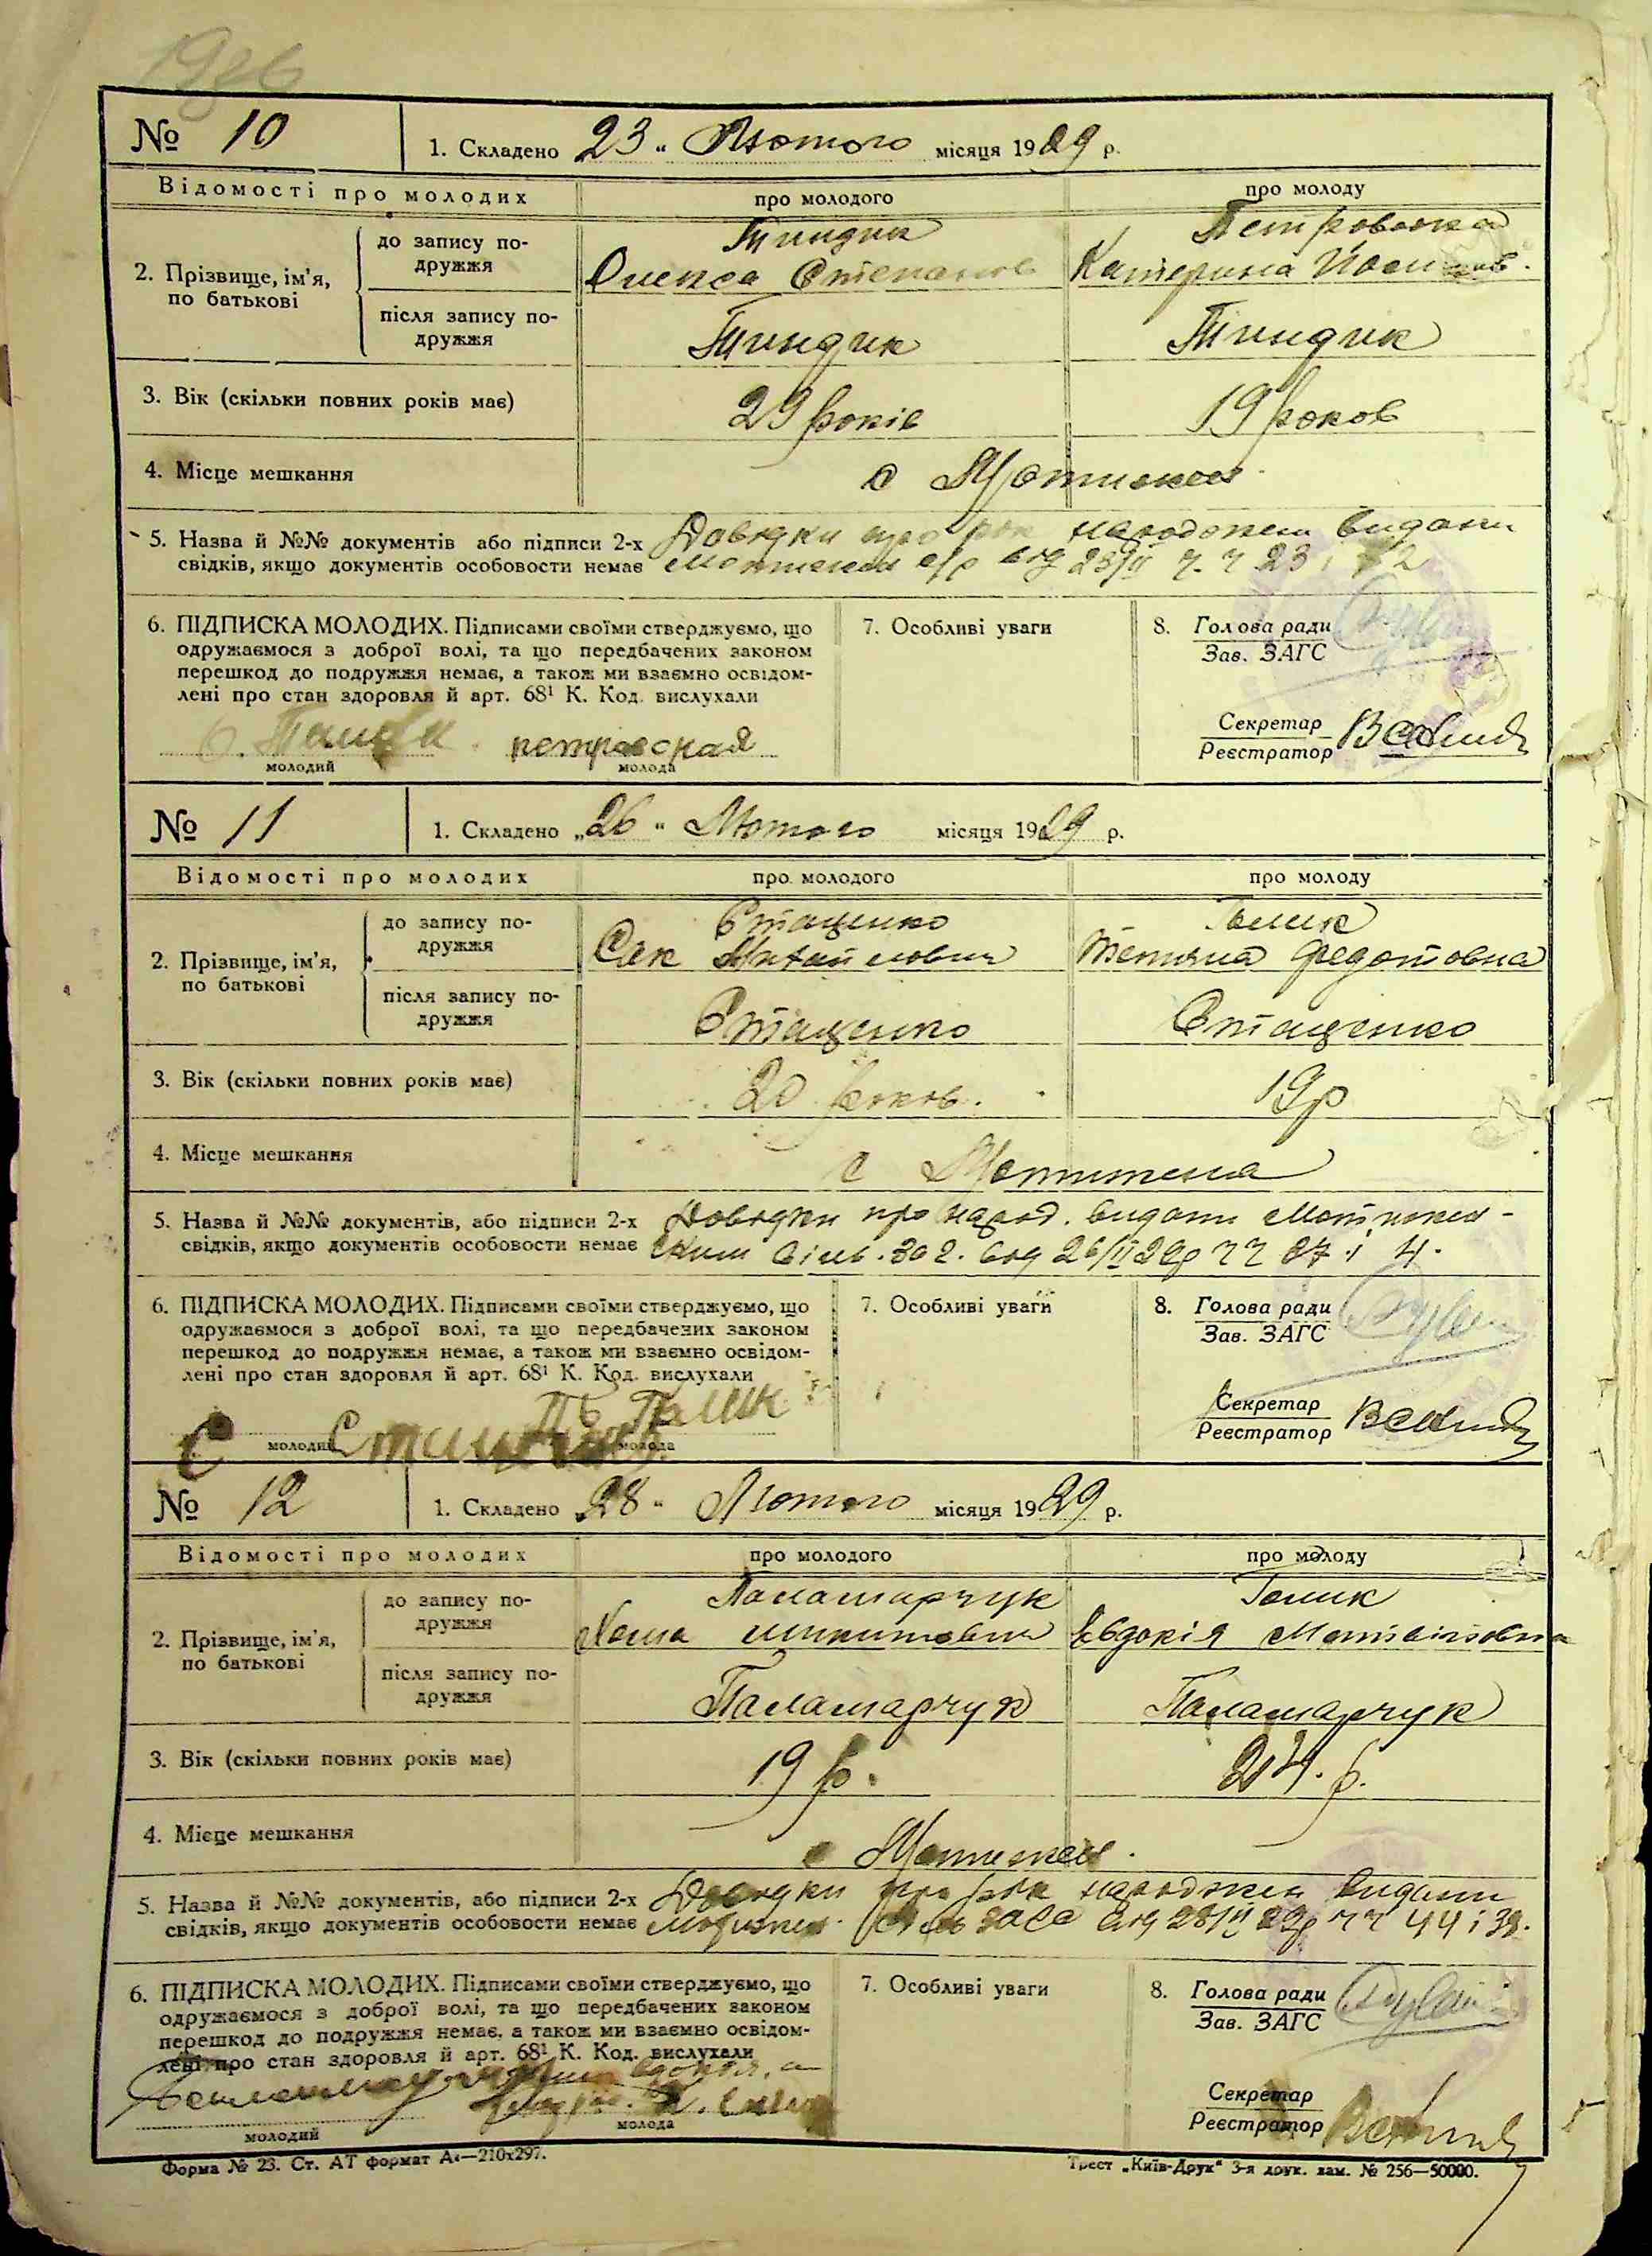 № 10
1. Складено 23 „ Лютого місяця 1929 р.
Відомості про молодих про молодого про молоду
2. Прізвище, ім'я, по батькові
до запису подружжя
Тиндик Петровська
Олекса Степанов Катерина
після запису подружжя
Тиндик Тиндик
3. Вік (скільки повних років має) 29 років 19 роков
4. Місце мешкання с
5. Назва й №№ документів або підписи 2-х Довідки про рок народжен видани
свідків, якщо документів особовости немає с/р від 23/II ч. ч 23 і
6. ПІДПИСКА МОЛОДИХ. Підписами своїми стверджуємо, що
одружаємося з доброї волі, та що передбачених законом
перешкод до подружжя немає, а також ми взаємно освідом-
лені про стан здоровля й арт. 68¹ К. Код. вислухали
петровская
молодий молода
7. Особливі уваги
8. Голова ради
Зав. ЗАГС
Секретар
Реєстратор
№ 11
1. Складено „26 „ Лютого місяця 1929 р.
Відомості про молодих про молодого про молоду
2. Прізвище, ім'я, по батькові
до запису подружжя
Стаценко Галик
Сак Михайлович Тетяна Федотовна
після запису подружжя
Стаценко Стаценко
3. Вік (скільки повних років має) 20 роков. 19р
4. Місце мешкання с
5. Назва й №№ документів, або підписи 2-х Довідки про народ. видани
свідків, якщо документів особовости немає від 26/II 29р чч 37 і 4.
6. ПІДПИСКА МОЛОДИХ. Підписами своїми стверджуємо, що
одружаємося з доброї волі, та що передбачених законом
перешкод до подружжя немає, а також ми взаємно освідом-
лені про стан здоровля й арт. 68¹ К. Код. вислухали
молодий молода
7. Особливі уваги
8. Голова ради
Зав. ЗАГС
Секретар
Реєстратор
№ 12
1. Складено „28 „ Лютого місяця 1929 р.
Відомості про молодих про молодого про молоду
2. Прізвище, ім'я, по батькові
до запису подружжя
Паламарчук Галик
Хома Микитович Євдокія
після запису подружжя
Паламарчук Паламарчук
3. Вік (скільки повних років має) 19 р. 24. р.
4. Місце мешкання с
5. Назва й №№ документів, або підписи 2-х Довідки про рік народжен видани
свідків, якщо документів особовости немає від 28/II 29р чч 44 і 39.
6. ПІДПИСКА МОЛОДИХ. Підписами своїми стверджуємо, що
одружаємося з доброї волі, та що передбачених законом
перешкод до подружжя немає, а також ми взаємно освідом-
лені про стан здоровля й арт. 68¹ К. Код. вислухали
молодий молода
7. Особливі уваги
8. Голова ради
Зав. ЗАГС
Секретар
Реєстратор
Форма № 23. Ст. АТ формат А4—210x297.
Трест „Київ-Друк" 3-я друк. зам. № 256—50000.